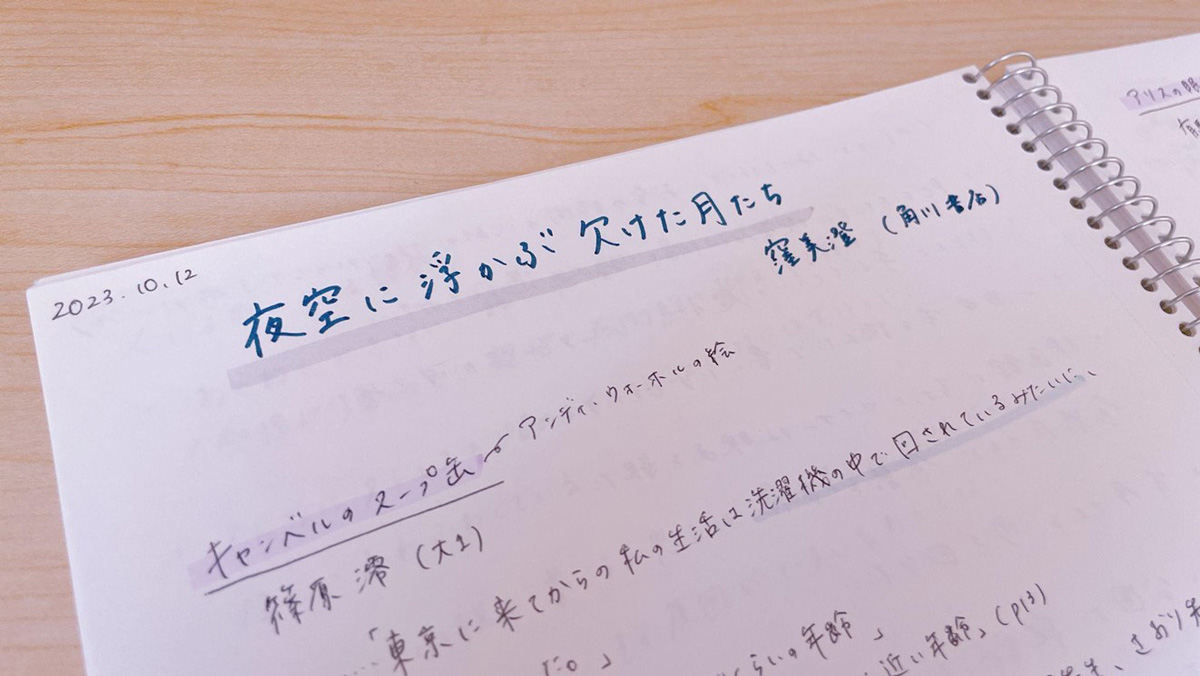 2023.10.12
夜空に浮かぶ欠けた月たち
窪美澄（角川書店）
キャンベルのスープ缶 アンディ・ウォーホルの絵
篠原 澪（大1）
…「東京に来てからの私の生活は洗濯機の中で回されているみたいに、
だ。」
くらいの年齢」
近い年齢」（p13）
さおり先
アリスの眼